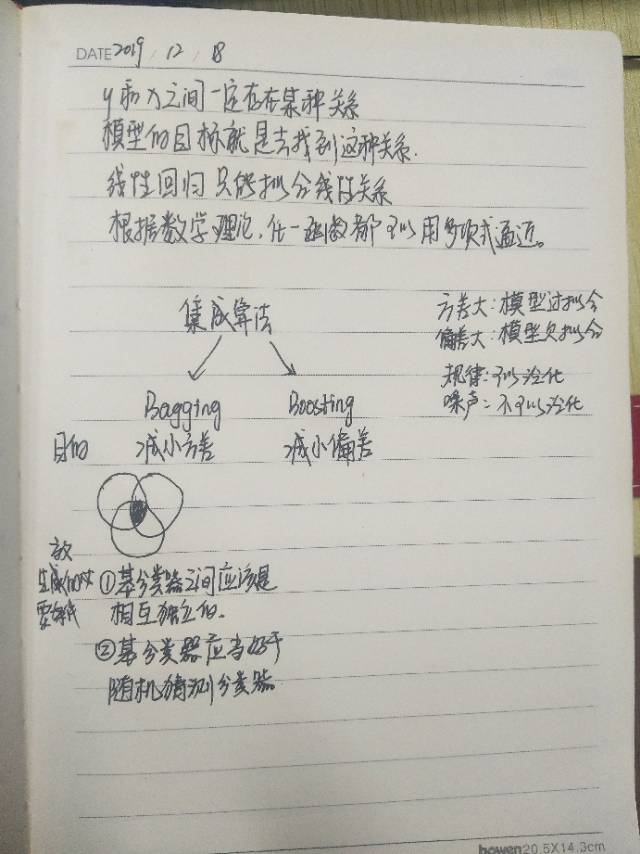 DATE 2019 / 12 / 18
y和x之间一定存在某种关系
模型的目标就是去找到这种关系.
线性回归只能拟合线性关系
根据数学理论,任一函数都可以用多项式逼近。
集成算法
方差大:模型过拟合
偏差大:模型欠拟合
规律:可以泛化
噪声:不可以泛化
Bagging Boosting
目的 减小方差 减小偏差
①基分类器之间应该是
相互独立的.
②基分类器应当好于
随机猜测分类器
bowen 20.5X14.3cm